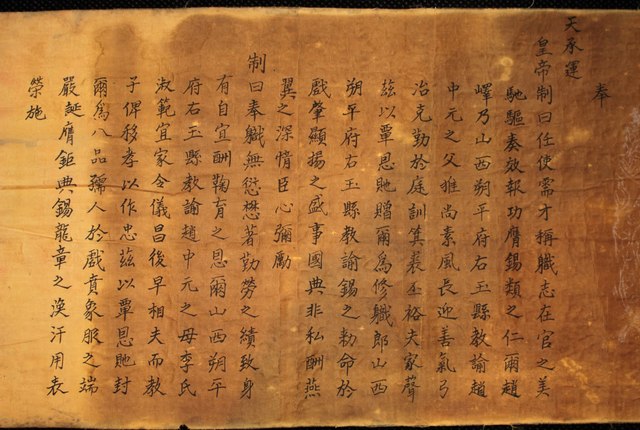 奉
天承運
皇帝制曰任使需才稱職志在官之美
馳驅奏效報功膺錫類之仁爾趙
嶧乃山西朔平府右玉縣教諭趙
中元之父推尚素風長迎善氣弓
冶克勤於庭訓箕裘丕裕夫家聲
茲以覃恩貤贈爾爲修職郎山西
朔平府右玉縣教諭錫之勅命於
戲肇顯揚之盛事國典非私酬燕
翼之深情臣心彌勵
制曰奉職無愆懋著勤勞之績致身
有自宜酬鞠育之恩爾山西朔平
府右玉縣教諭趙中元之母李氏
淑範宜家令儀昌後早相夫而教
子俾移孝以作忠茲以覃恩貤封
爾爲八品孺人於戲賁象服之端
嚴誕膺鉅典錫龍章之渙汗用表
榮施